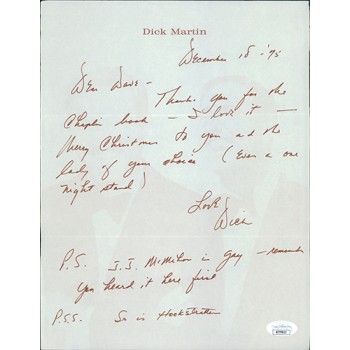 Dick Martin
December 18 - '75
Dear Dave -
Thank you for the
Chaplin book - I love it -
Merry Christmas to you and the
lady of your choice (Even a one
night stand)
Love
Dick
P.S. J.J. McMahon is gay - remember
you heard it here first
P.S.S. So is Hookstratten
JSA